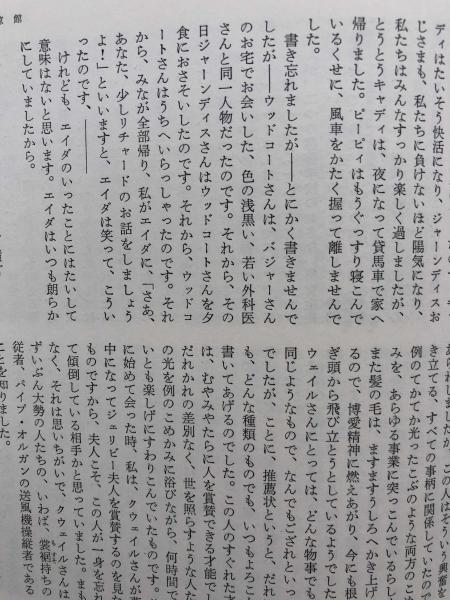 ディはたいそう快活になり、ジャーンディスお
じさまも、私たちに負けないほど陽気になり、
私たちはみんなすっかり楽しく過しましたが、
とうとうキャディは、夜になって貸馬車で家へ
帰りました。ピーピィはもうぐっすり寝こんで
いるくせに、風車をかたく握って離しませんで
した。
書き忘れましたが——とにかく書きませんで
したが——ウッドコートさんは、バジャーさん
のお宅でお会いした、色の浅黒い、若い外科医
さんと同一人物だったのです。それから、その
日ジャーンディスさんはウッドコートさんを夕
食におさそいしたのです。それから、ウッドコ
ートさんはうちへいらっしゃったのです。それ
から、みなが全部帰り、私がエイダに、「さあ、
あなた、少しリチャードのお話をしましょう
よ!」といいますと、エイダは笑って、こうい
ったのです、————
けれども、エイダのいったことにはたいして
意味はないと思います。エイダはいつも朗らか
にしていましたから。
き立てる、すべての事柄に関係していたので
例のてかてか光ったこぶのような両方のこめか
みを、あらゆる事業に突っこんでいるらし
また髪の毛は、ますますうしろへかき上げ
るので、博愛精神に燃えあがり、今にも根
ぎ頭から飛び立とうとしているようでした
ウェイルさんにとっては、どんな物事でも
同じようなもので、なんでもござれといっ
でしたが、ことに、推薦状というと、だれ
も、どんな種類のものでも、いつもよろこ
書いてあげるのでした。この人のすぐれた才
は、むやみやたらに人を賞賛できる才能でし
だれかれの差別なく、世を照らすような人な
の光を例のこめかみに浴びながら、何時間で
いとも楽しげにすわりこんでいたものです。
に始めて会った時、私は、クウェイルさんが夢
中になってジェリビー夫人を賞賛するのを見た
ものですから、夫人こそ、この人が一身を忘れ
て傾倒している相手かと思っていました。まも
なく、それは思いちがいで、クウェイルさんは
ずいぶん大勢の人たちの、いわば、裳裾持ちの
従者、パイプ・オルガンの送風機操縦者である
ことを知りました。